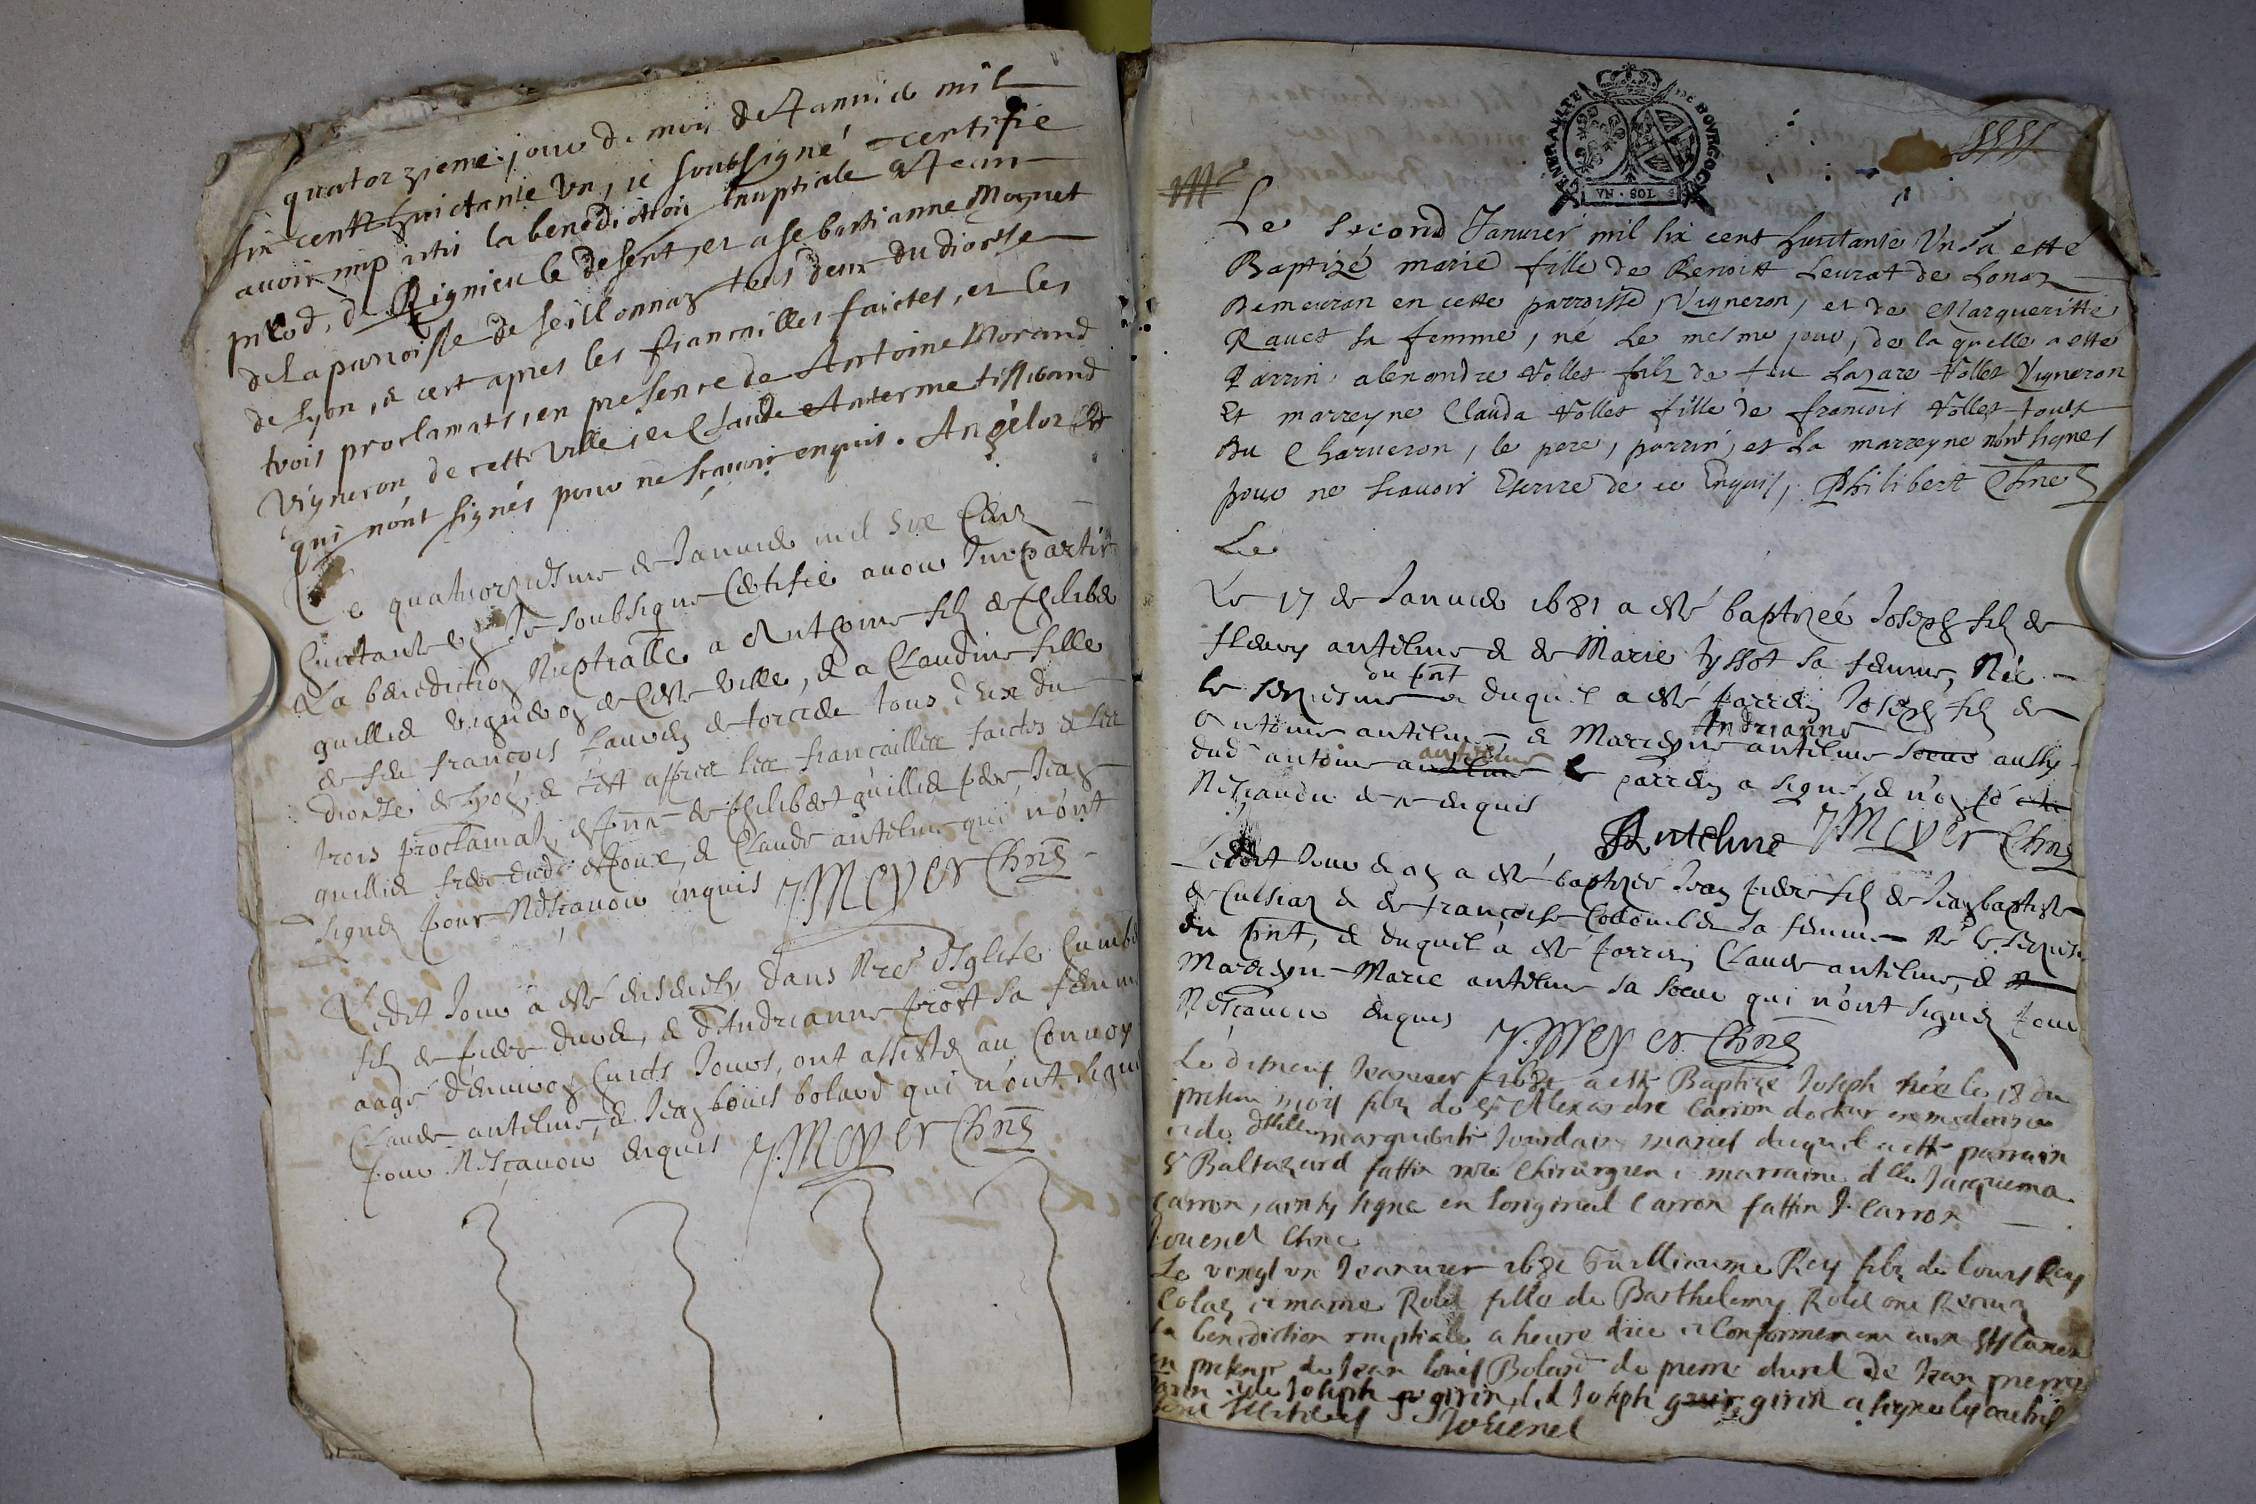 quatorzieme jour du mois de Januier mil
six cents huictante Un, ie soubsigné certifie
auoir imparti la benediction nuptiale a Jean
pilod, de Rignieu le desert, et a sebastianne Moynet
de la parroisse de seillonnaz tous deux du diocese
de Lyon, & cert apres les fiancailles faictes, et les
trois proclamats, en presence de Antoine Morand
Vigneron de cette Ville, et Claude Anterme
qui n'ont signés pour ne scauoir enquis.
Le quatuorziesme de Januier mil Six Cens
huictante Je soubsigne Certifie auoir Impartir
La benediction Nuptialle a Anthoine filz de philibert
guillier Vigneron de Ceste Ville, & a Claudine fille
de feu françois de torcieu tous deux du
dioceze de Lyon, & c'est appres les fiancailles faictes & les
trois proclamats, de philibert guillier pere, Jean
guillier frere dudt espoux, & Claude antelme qui n'ont
signez pour Ne scauoir enquis J. Meyer Chne
Ledit Jour a esté enseuely dans Nre Esglise
filz de piere durel, & d'Andrianne prost sa femme
aagé d'enuiron huict Jours, ont assistez au Conuoy
Claude antelme, & Jean louis bolard qui n'ont signé
pour Ne scauoir enquis J. Meyer Chne
GENERALITE DE BOURGOGNE
VN · SOL
Le second Januier mil six cent huictante Vn a esté
Baptizé marie fille de Benoist Leurat de Lonaz
Demeuran en cette parroisse, Vigneron, et de Margueritte
Rauet sa femme, né Le mesme jour, de la quelle a esté
Parrin alexandre Vollet filz de feu Lazare Vollet Vigneron
Et marreyne Clauda Vollet fille de francois Vollet touts
Du Charueron, le pere, parrin, et la marreyne n'ont signes
pour ne scauoir Escrire de ce Enquis, Philibert Chne
Le
Le 17 de Januier 1681 a esté baptizéé Joseph filz de
fleury antelme & de Marie tyssot sa femme, Née
le seziesme du pnt & duquel a esté parrein Joseph filz de
antoine antelme & Marreyne Andrianne antelme soeur aussy
dudt antoine antelme antelme le parrein a signé, & non
Ne scauoir de ce enquis
Antelme J. Meyer Chne
Ledit Jour & an a esté baptizee Jean piere filz de Jean baptiste
de Culsiaz & de françoise Collombier sa femme Né le seziesme
du pnt, & duquel a esté parrein Claude antelme, &
Marreyne Marie antelme sa soeur qui n'ont signez pour
Ne scauoir enquis J. Meyer Chne
Le dixneuf Januier 1681 a esté Baptize Joseph née le 18 du
present mois filz de Sr Alexandre Carron docteur en medecine
et de dlle marguerite Jourdain maries duquel a esté parrain
Sr Baltazard fattin mre Chirurgien & marraine dlle Jacquema
Carron, ainsy signe en l'original Carron fattin J. Carron
Jouenel Chne
Le vingt vn Januier 1681 Guilliaume Rey filz de Louys Rey
Colaz et marie Rolet fille de Barthelemy Rolet ont Receu
la benediction nuptiale a heure düe et Conformement aux
en presence de Jean louis Bolard de pierre durel de Jean pierre
et de Joseph girin, led Joseph girin a signe
Jouenel